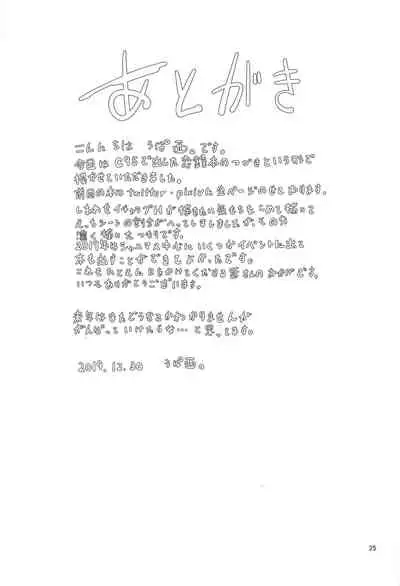 あとがき
こんんちは うぱ西。です。
今回は C95で出した のつづきという形で
描かせていただきました。
前回の本は twitter・pixivに全ページのせてあります。
しあわせイチャラブHが描きたい気もちをこめて描いて
え。ちシーンの割合が へってしまいましたが、その分
濃く 描いたつもりです。
2019年はシャニマス中心にいくつかイベントに出て
本も出すことができてよかったです。
これもたくさん よろこんでくださる皆さんのおかげです。
いつもありがとうございます。
来年はまたどうなるかわかりませんが
がんばっていけたらな…と思ってます。
2019.12.30 うぱ西。
25